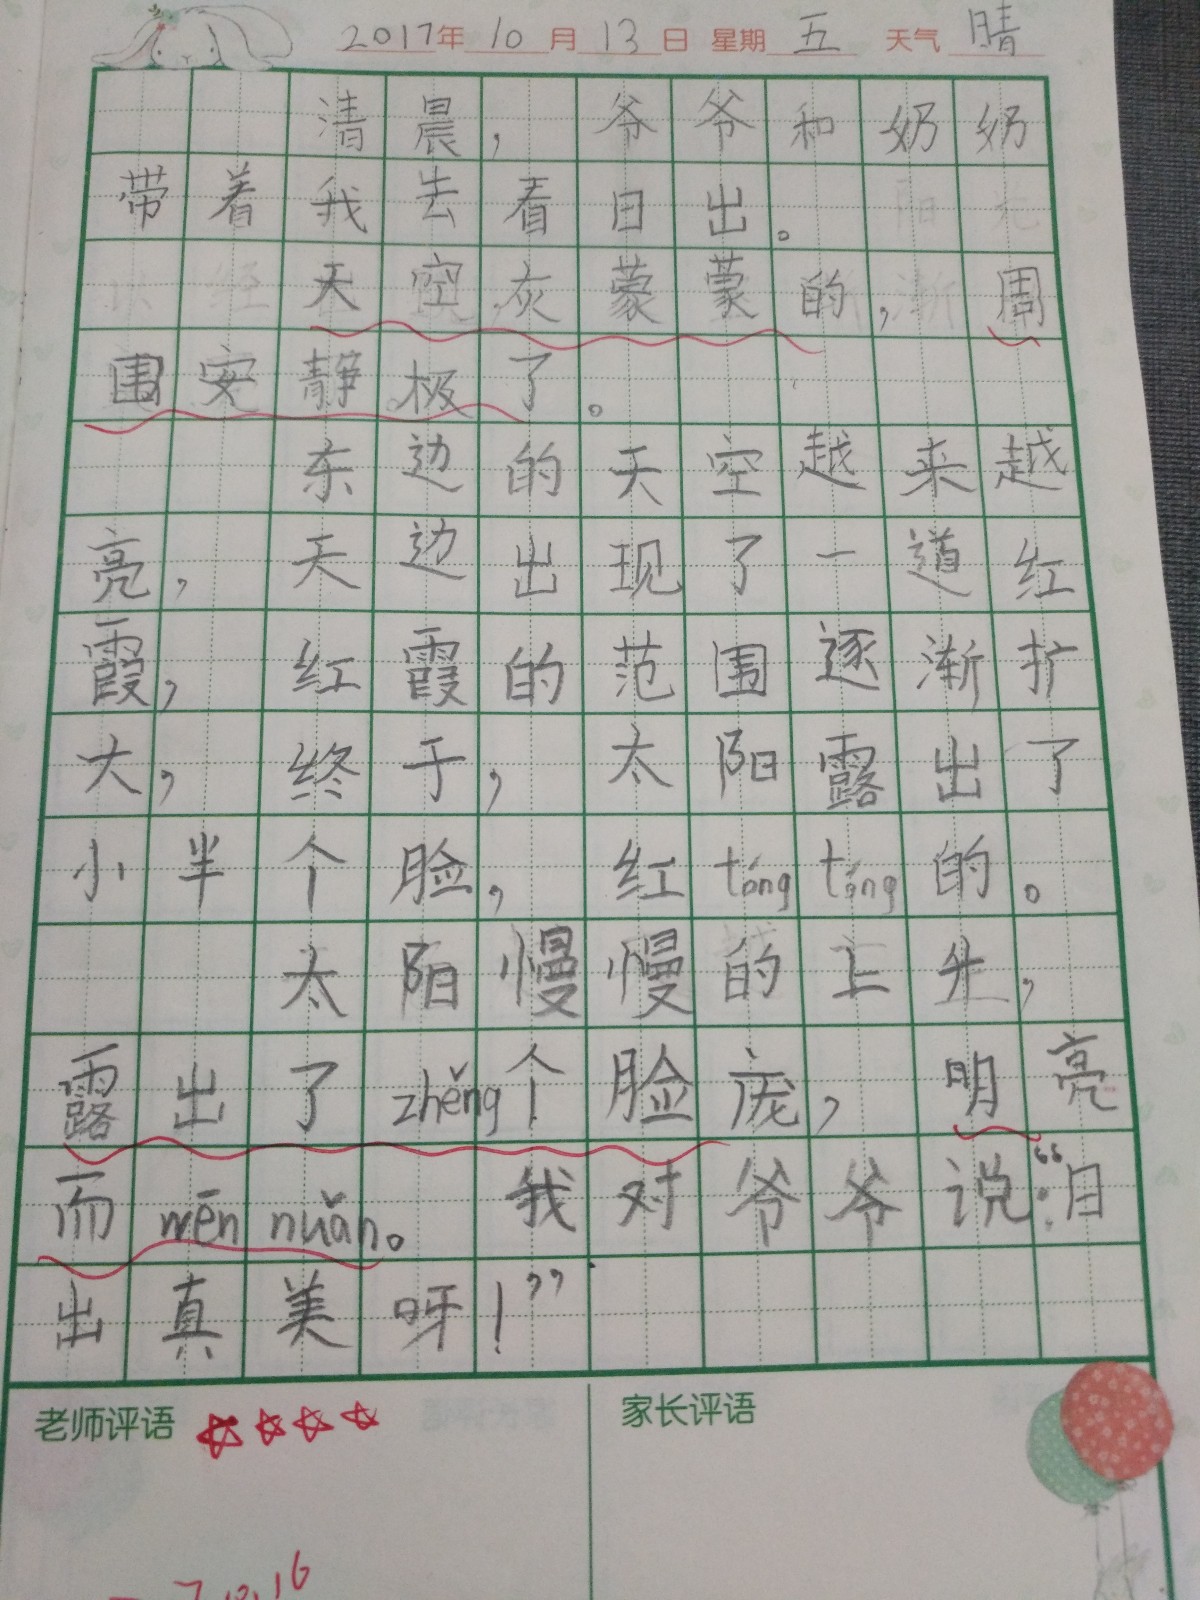 2017年 10 月 13 日 星期 五 天气 晴
清晨，爷爷和奶奶
带着我去看日出。
天空灰蒙蒙的，周
围安静极了。
东边的天空越来越
亮，天边出现了一道红
霞，红霞的范围逐渐扩
大，终于，太阳露出了
小半个脸，红tóng tóng的。
太阳慢慢的上升，
露出了zhěng个脸庞，明亮
而wēn nuǎn。我对爷爷说：“日
出真美呀！”
老师评语 家长评语